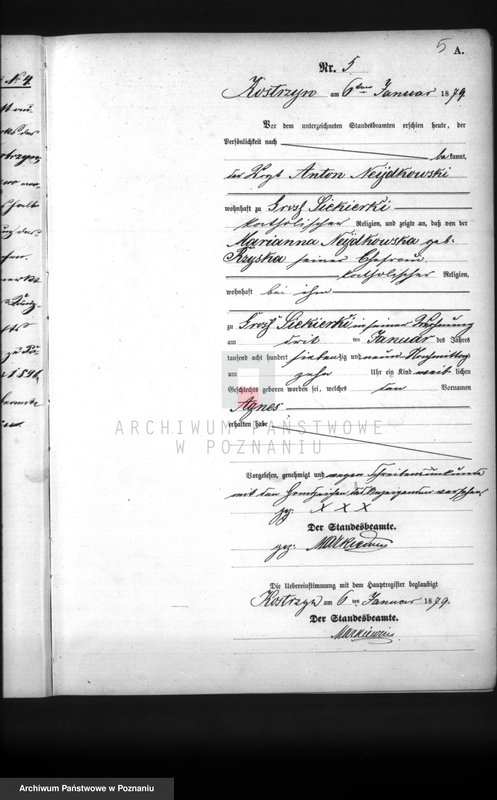 5 A.
Nr. 5
Kostrzyn am 6ten Januar 1879.
Vor dem unterzeichneten Standesbeamten erschien heute, der
Persönlichkeit nach
bekannt,
der Vogt Anton Neydkowski
wohnhaft zu Gross Siekierki
katholischer Religion, und zeigte an, daß von der
Marianna Neydkowska geb.
Ryska seiner Ehefrau
katholischer Religion,
wohnhaft bei ihm
zu Gross Siekierki in seiner Wohnung
am dritten Januar des Jahres
tausend acht hundert siebenzig und neun Nachmittag
um zehn Uhr ein Kind weiblichen
Geschlechts geboren worden sei, welches den Vornamen
Agnes
erhalten habe
Vorgelesen, genehmigt und wegen Schreibensunkunde
mit den Handzeichen des Anzeigenden versehen
gz. X X X
Der Standesbeamte.
gez. Markiewicz
Die Uebereinstimmung mit dem Hauptregister beglaubigt
Kostrzyn am 6ten Januar 1879.
Der Standesbeamte.
Markiewicz
No 4
1846
ARCHIWUM PAŃSTWOWE
W POZNANIU
Archiwum Państwowe w Poznaniu